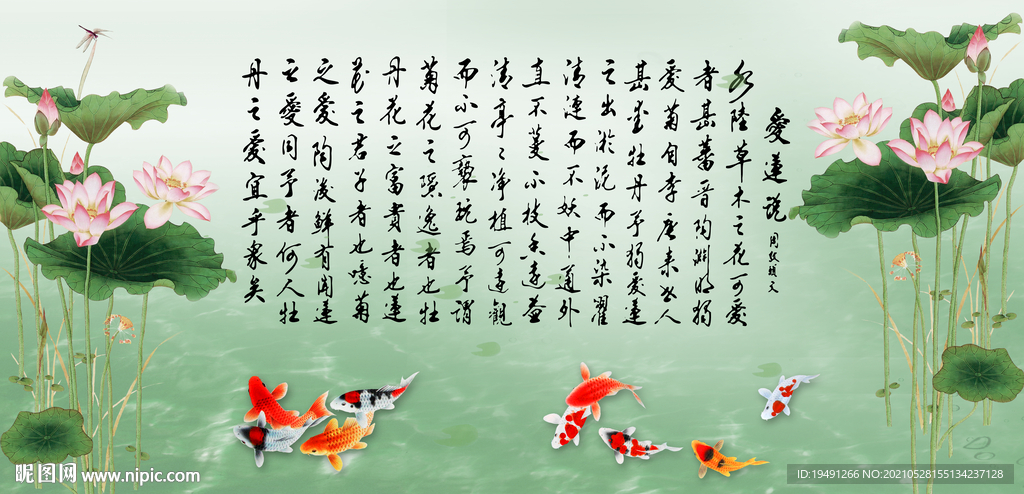 愛蓮説
周敦頤文
水陸草木之花可愛
者甚蕃晋陶渊明獨
愛菊自李唐来世人
甚愛牡丹予獨愛蓮
之出淤泥而不染濯
清漣而不妖中通外
直不蔓不枝香遠益
清亭々净植可遠觀
而不可褻玩焉予謂
菊花之隱逸者也牡
丹花之富貴者也蓮
花之君子者也噫菊
之愛陶後鮮有闻蓮
之愛同予者何人牡
丹之愛宜乎衆矣
昵图网 www.nipic.com
ID:19491266 NO:20210528155134237128